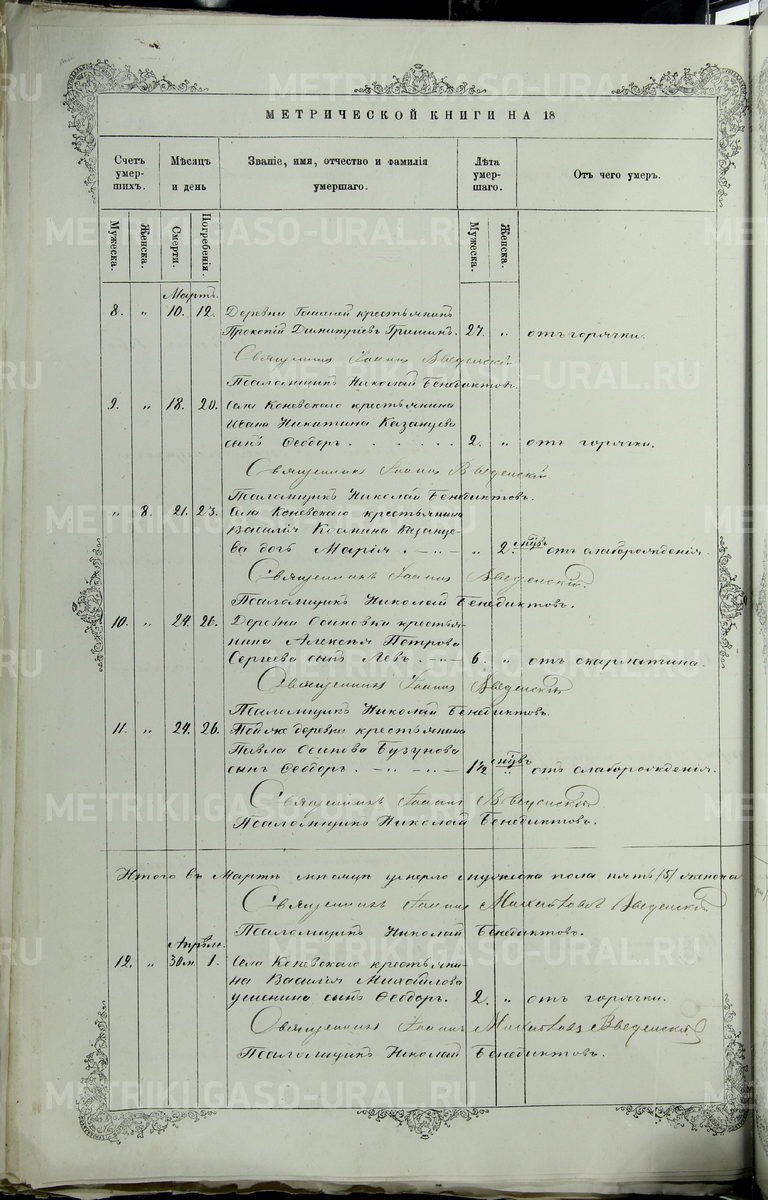 МЕТРИЧЕСКОЙ КНИГИ НА 18
Счетъ умер- шихъ. Мѣсяцъ и день Званіе, имя, отчество и фамилія умершаго. Лѣта умер- шаго. Отъ чего умеръ.
Мужеска. Женска. Смерти. Погребенія. Мужеска. Женска.
Мартъ.
8. „ 10. 12. Деревни крестьянинъ
Прокопій Димитріевъ Гришинъ. 27. „ отъ горячки.
Священникъ Іоаннъ Введенскій
Псаломщикъ Николай Бенедиктовъ.
9. „ 18. 20. Села Коневскаго крестьянина
Ивана Никитина Казанцева
сынъ Ѳеодоръ. 2. „ отъ горячки.
Священникъ Іоаннъ Введенскій
Псаломщикъ Николай Бенедиктовъ.
„ 8. 21. 23. Села Коневскаго крестьянина
Василія Козмина Казанце-
ва дочь Марія. „ 2. отъ слаборожденія.
Священникъ Іоаннъ Введенскій
Псаломщикъ Николай Бенедиктовъ.
10. „ 24. 26. Деревни Осиновки крестья-
нина Алексѣя Петрова
Сергеева сынъ Левъ. 6. „ отъ скарлатины.
Священникъ Іоаннъ Введенскій
Псаломщикъ Николай Бенедиктовъ.
11. „ 24. 26. Той же деревни крестьянина
Павла Осипова Бузунова
сынъ Ѳеодоръ. 1½ „ отъ слаборожденія.
Священникъ Іоаннъ Введенскій
Псаломщикъ Николай Бенедиктовъ.
Итого въ Мартѣ мѣсяцѣ умерло мужеска пола пять /5/ женска
Священникъ Іоаннъ Введенскій
Псаломщикъ Николай Бенедиктовъ.
Апрѣль.
12. „ 30 м. 1. Села Коневскаго крестьяни-
на Василія Михайлова
сынъ Ѳеодоръ. 2. „ отъ горячки.
Священникъ Іоаннъ Введенскій
Псаломщикъ Николай Бенедиктовъ.
METRIKI.GASO-URAL.RU